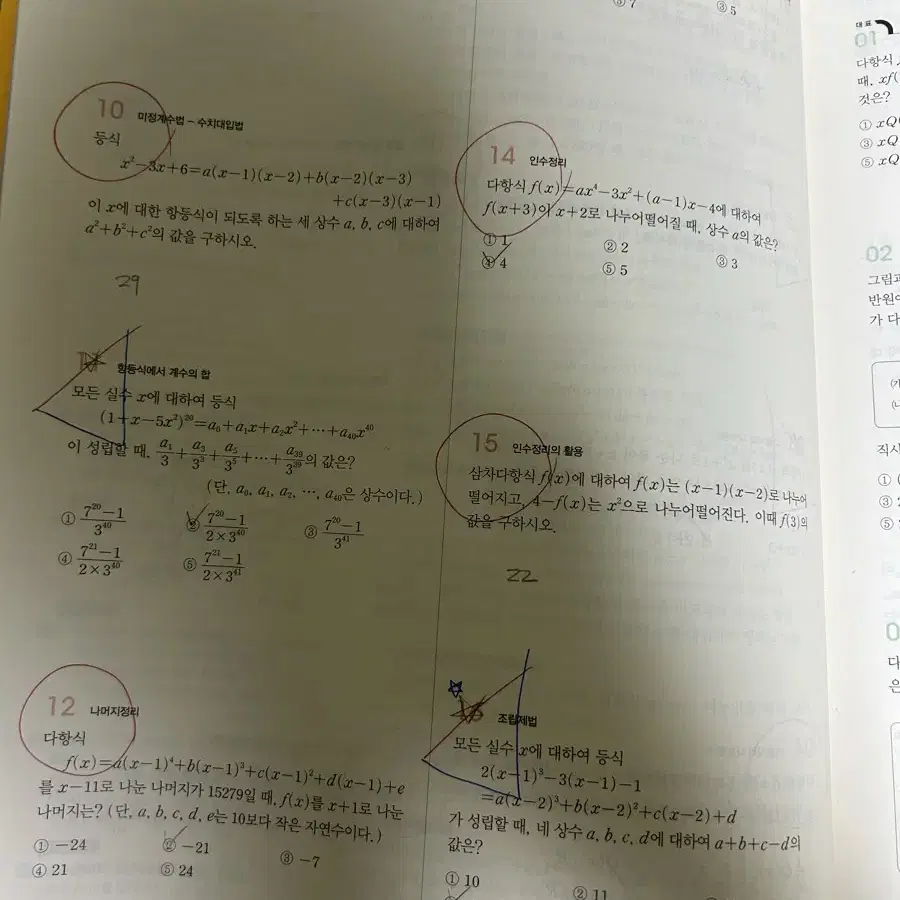 ③ 5
10 미정계수법 - 수치대입법
등식
x²-3x+6=a(x-1)(x-2)+b(x-2)(x-3)
+c(x-3)(x-1)
이 x에 대한 항등식이 되도록 하는 세 상수 a, b, c에 대하여
a²+b²+c²의 값을 구하시오.
29
11 항등식에서 계수의 합
모든 실수 x에 대하여 등식
(1+x-5x²)²⁰=a₀+a₁x+a₂x²+⋯+a₄₀x⁴⁰
이 성립할 때, a₁/3+a₃/3³+a₅/3⁵+⋯+a₃₉/3³⁹의 값은?
(단, a₀, a₁, a₂, ⋯, a₄₀은 상수이다.)
① (7²⁰-1)/3⁴⁰ ② (7²⁰-1)/(2×3⁴⁰) ③ (7²⁰-1)/3⁴¹
④ (7²¹-1)/(2×3⁴⁰) ⑤ (7²¹-1)/(2×3⁴¹)
12 나머지정리
다항식
f(x)=a(x-1)⁴+b(x-1)³+c(x-1)²+d(x-1)+e
를 x-11로 나눈 나머지가 15279일 때, f(x)를 x+1로 나눈
나머지는? (단, a, b, c, d, e는 10보다 작은 자연수이다.)
① -24 ② -21 ③ -7
④ 21 ⑤ 24
14 인수정리
다항식 f(x)=ax⁴-3x²+(a-1)x-4에 대하여
f(x+3)이 x+2로 나누어떨어질 때, 상수 a의 값은?
① 1 ② 2 ③ 3
④ 4 ⑤ 5
15 인수정리의 활용
삼차다항식 f(x)에 대하여 f(x)는 (x-1)(x-2)로 나누어
떨어지고, 4-f(x)는 x²으로 나누어떨어진다. 이때 f(3)의
값을 구하시오.
22
16 조립제법
모든 실수 x에 대하여 등식
2(x-1)³-3(x-1)-1
=a(x-2)³+b(x-2)²+c(x-2)+d
가 성립할 때, 네 상수 a, b, c, d에 대하여 a+b+c-d의
값은?
① 10 ② 11
대표
01
다항식
때, xf(
것은?
① xQ
③ xQ
⑤ xQ
02
그림과
반원에
가 다
직사